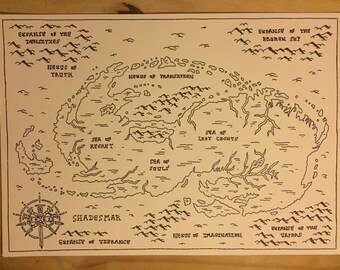 EXPANSE OF THE
DENSITIES
EXPANSE OF THE
BROKEN SKY
NEXUS OF
TRUTH
NEXUS OF TRANSITION
SEA OF
REGRET
SEA OF
LOST LIGHTS
SEA OF
SOULS
SHADESMAR
EXPANSE OF VIBRANCE
NEXUS OF IMAGINATION
EXPANSE OF THE
VAPORS